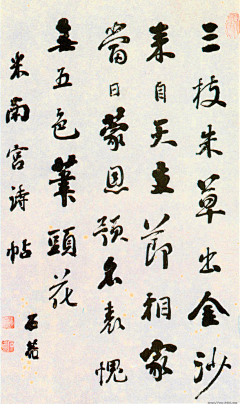 三枝朱草出金沙
来自天支節相家
當日蒙恩預名表愧
無五色筆頭花
米南宮詩帖
石菴